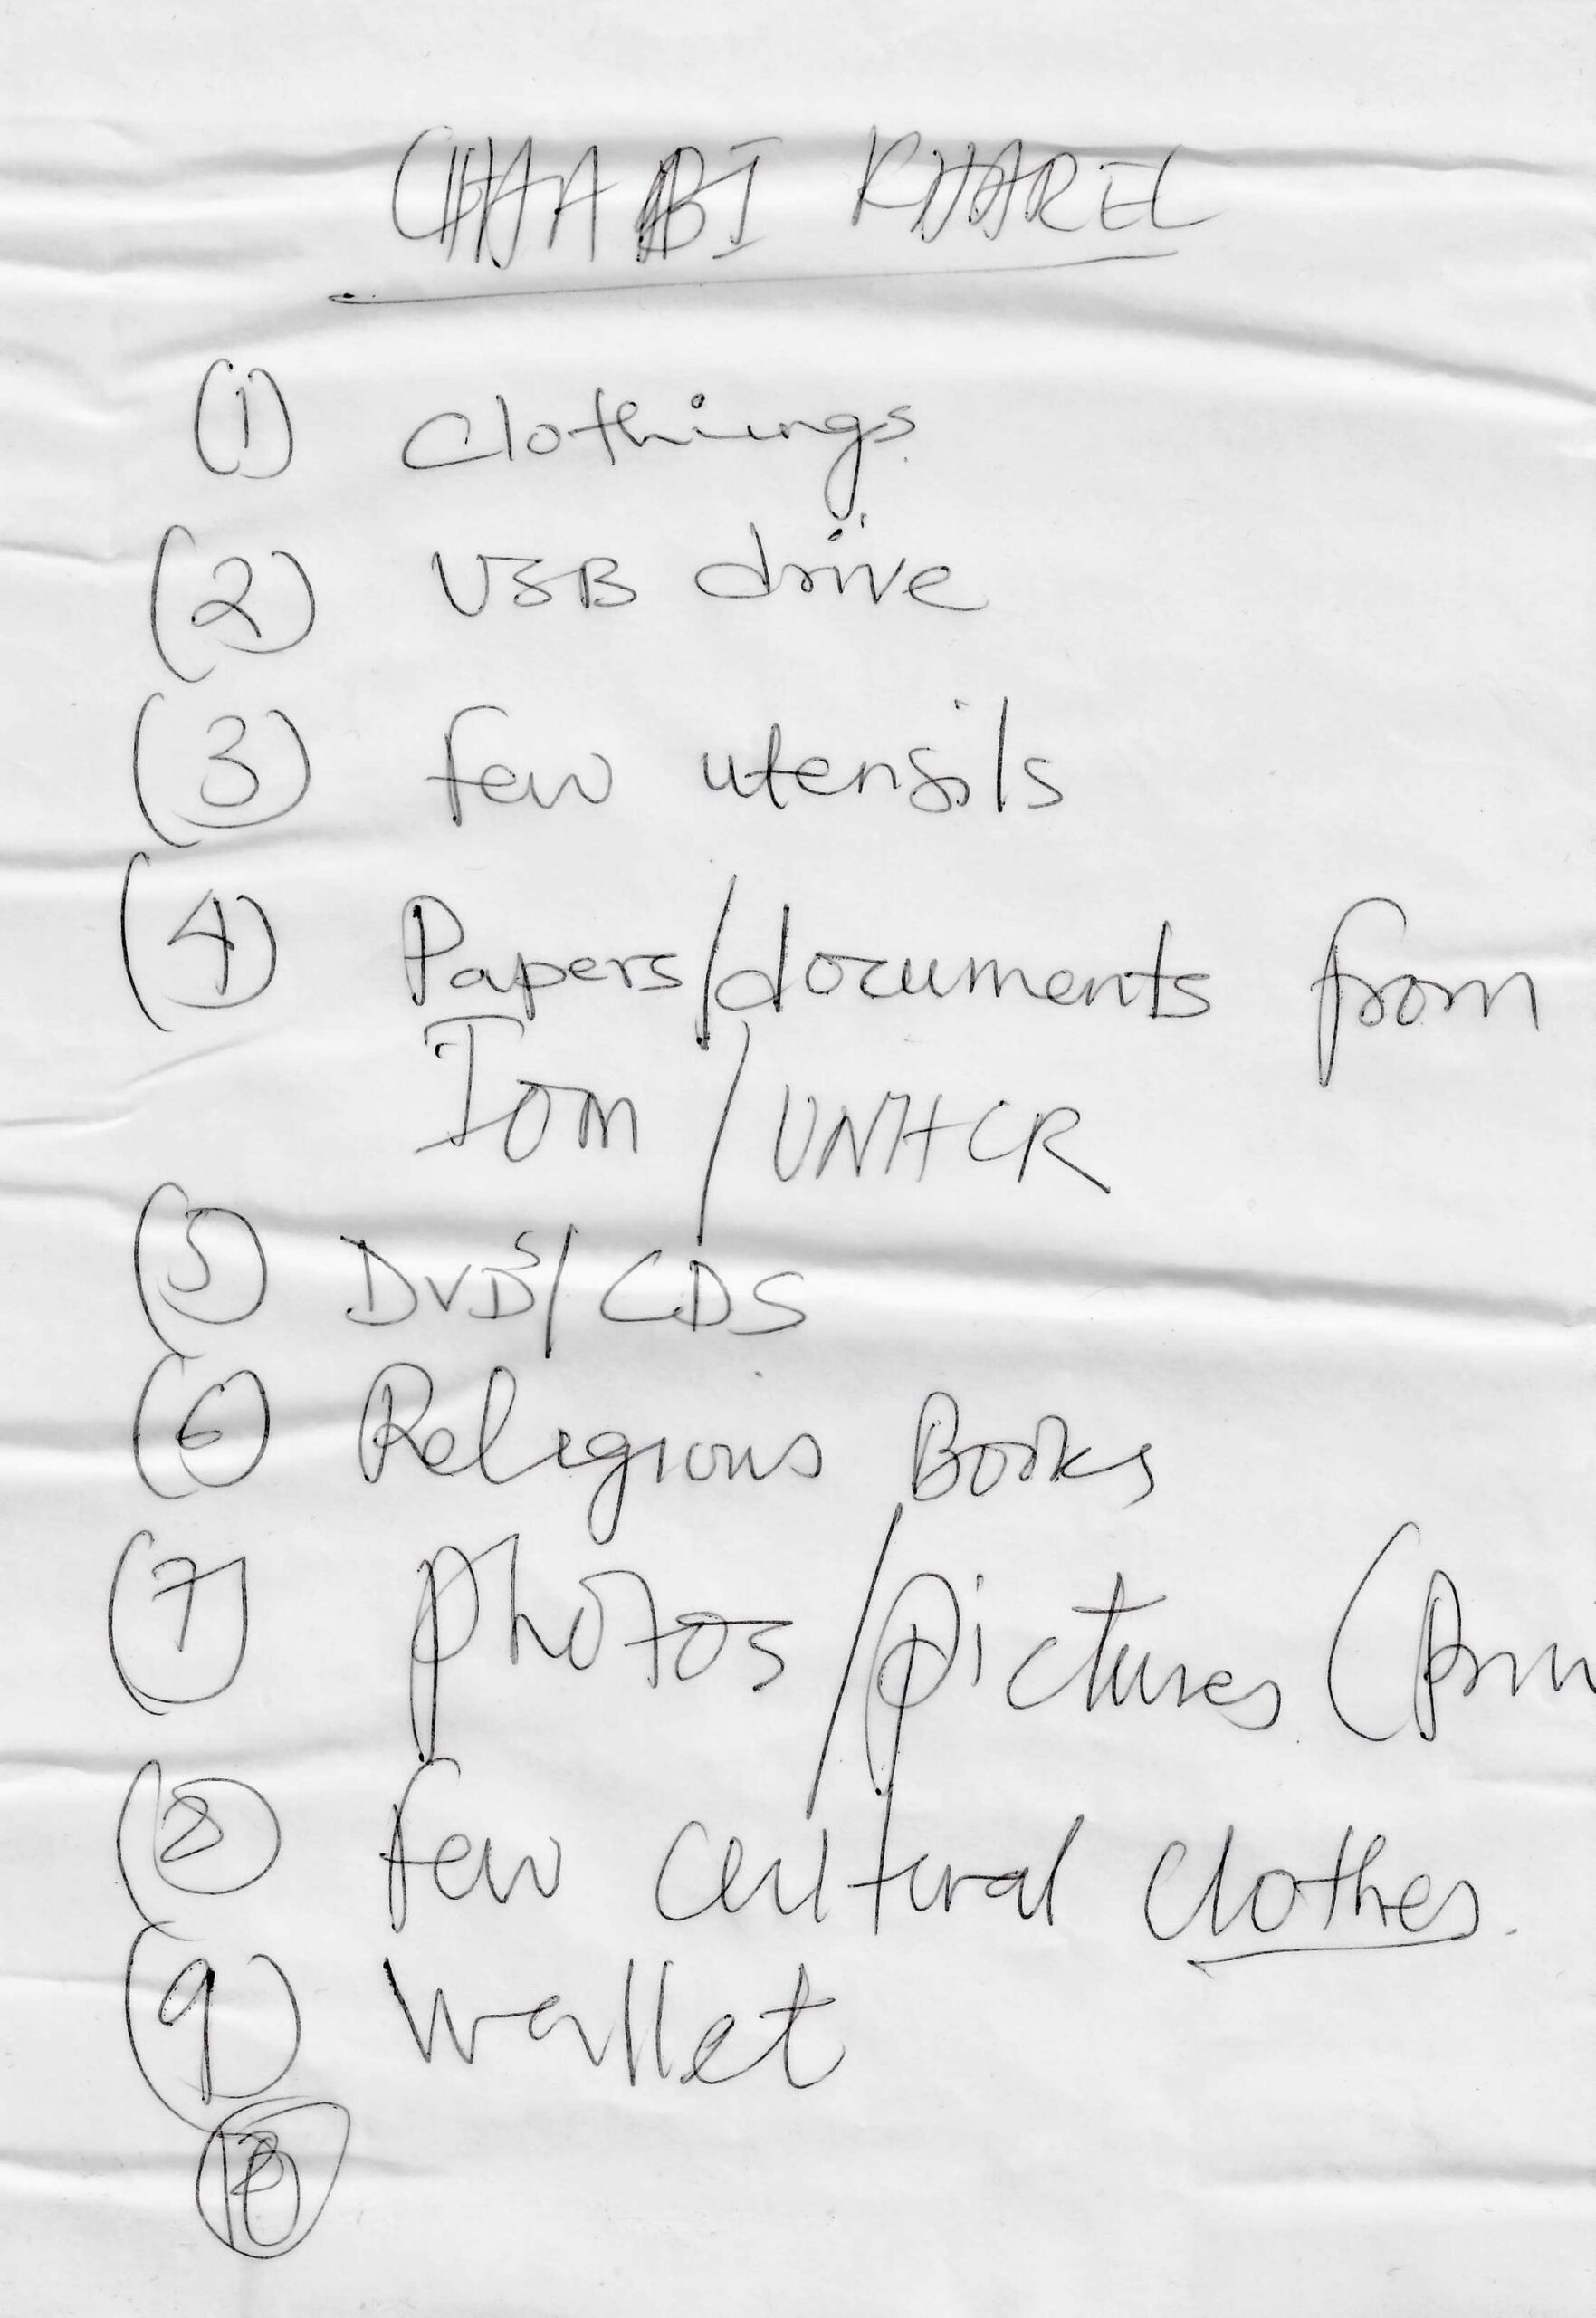 CHABI KHAREL
(1) Clothings
(2) USB drive
(3) few utensils
(4) Papers/documents from
IOM / UNHCR
(5) DVDs/CDS
(6) Religious Books
(7) Photos/pictures (
(8) few cultural clothes.
(9) Wallet
10